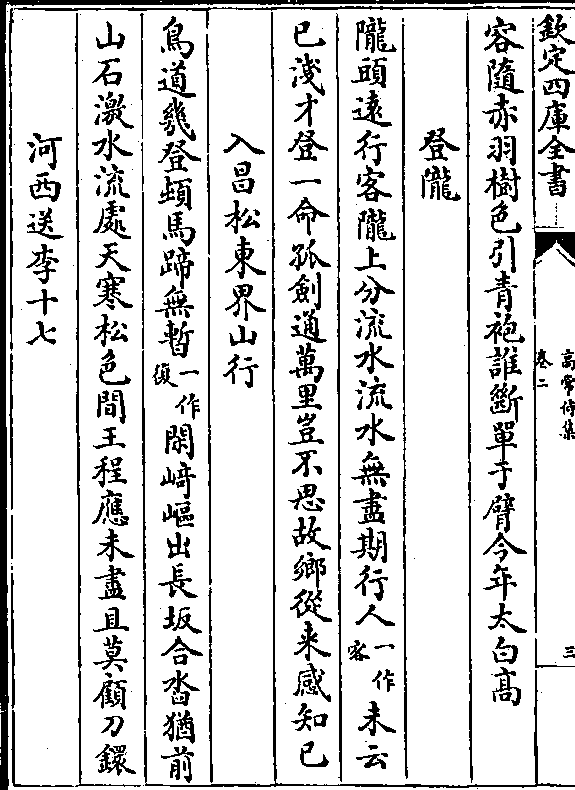 欽定四庫全書
高常侍集
卷二
三
容隨赤羽樹色引青袍誰斷單于臂今年太白髙
登隴
隴頭逺行客隴上分流水流水無盡期行人一作客未云
已淺才登一命孤劍通萬里豈不思故鄉從来感知已
入昌松東界山行
鳥道幾登頓馬蹄無暫一作復閑﨑嶇出長坂合沓猶前
山石激水流處天寒松色間王程應未盡且莫顧刀鐶
河西送李十七